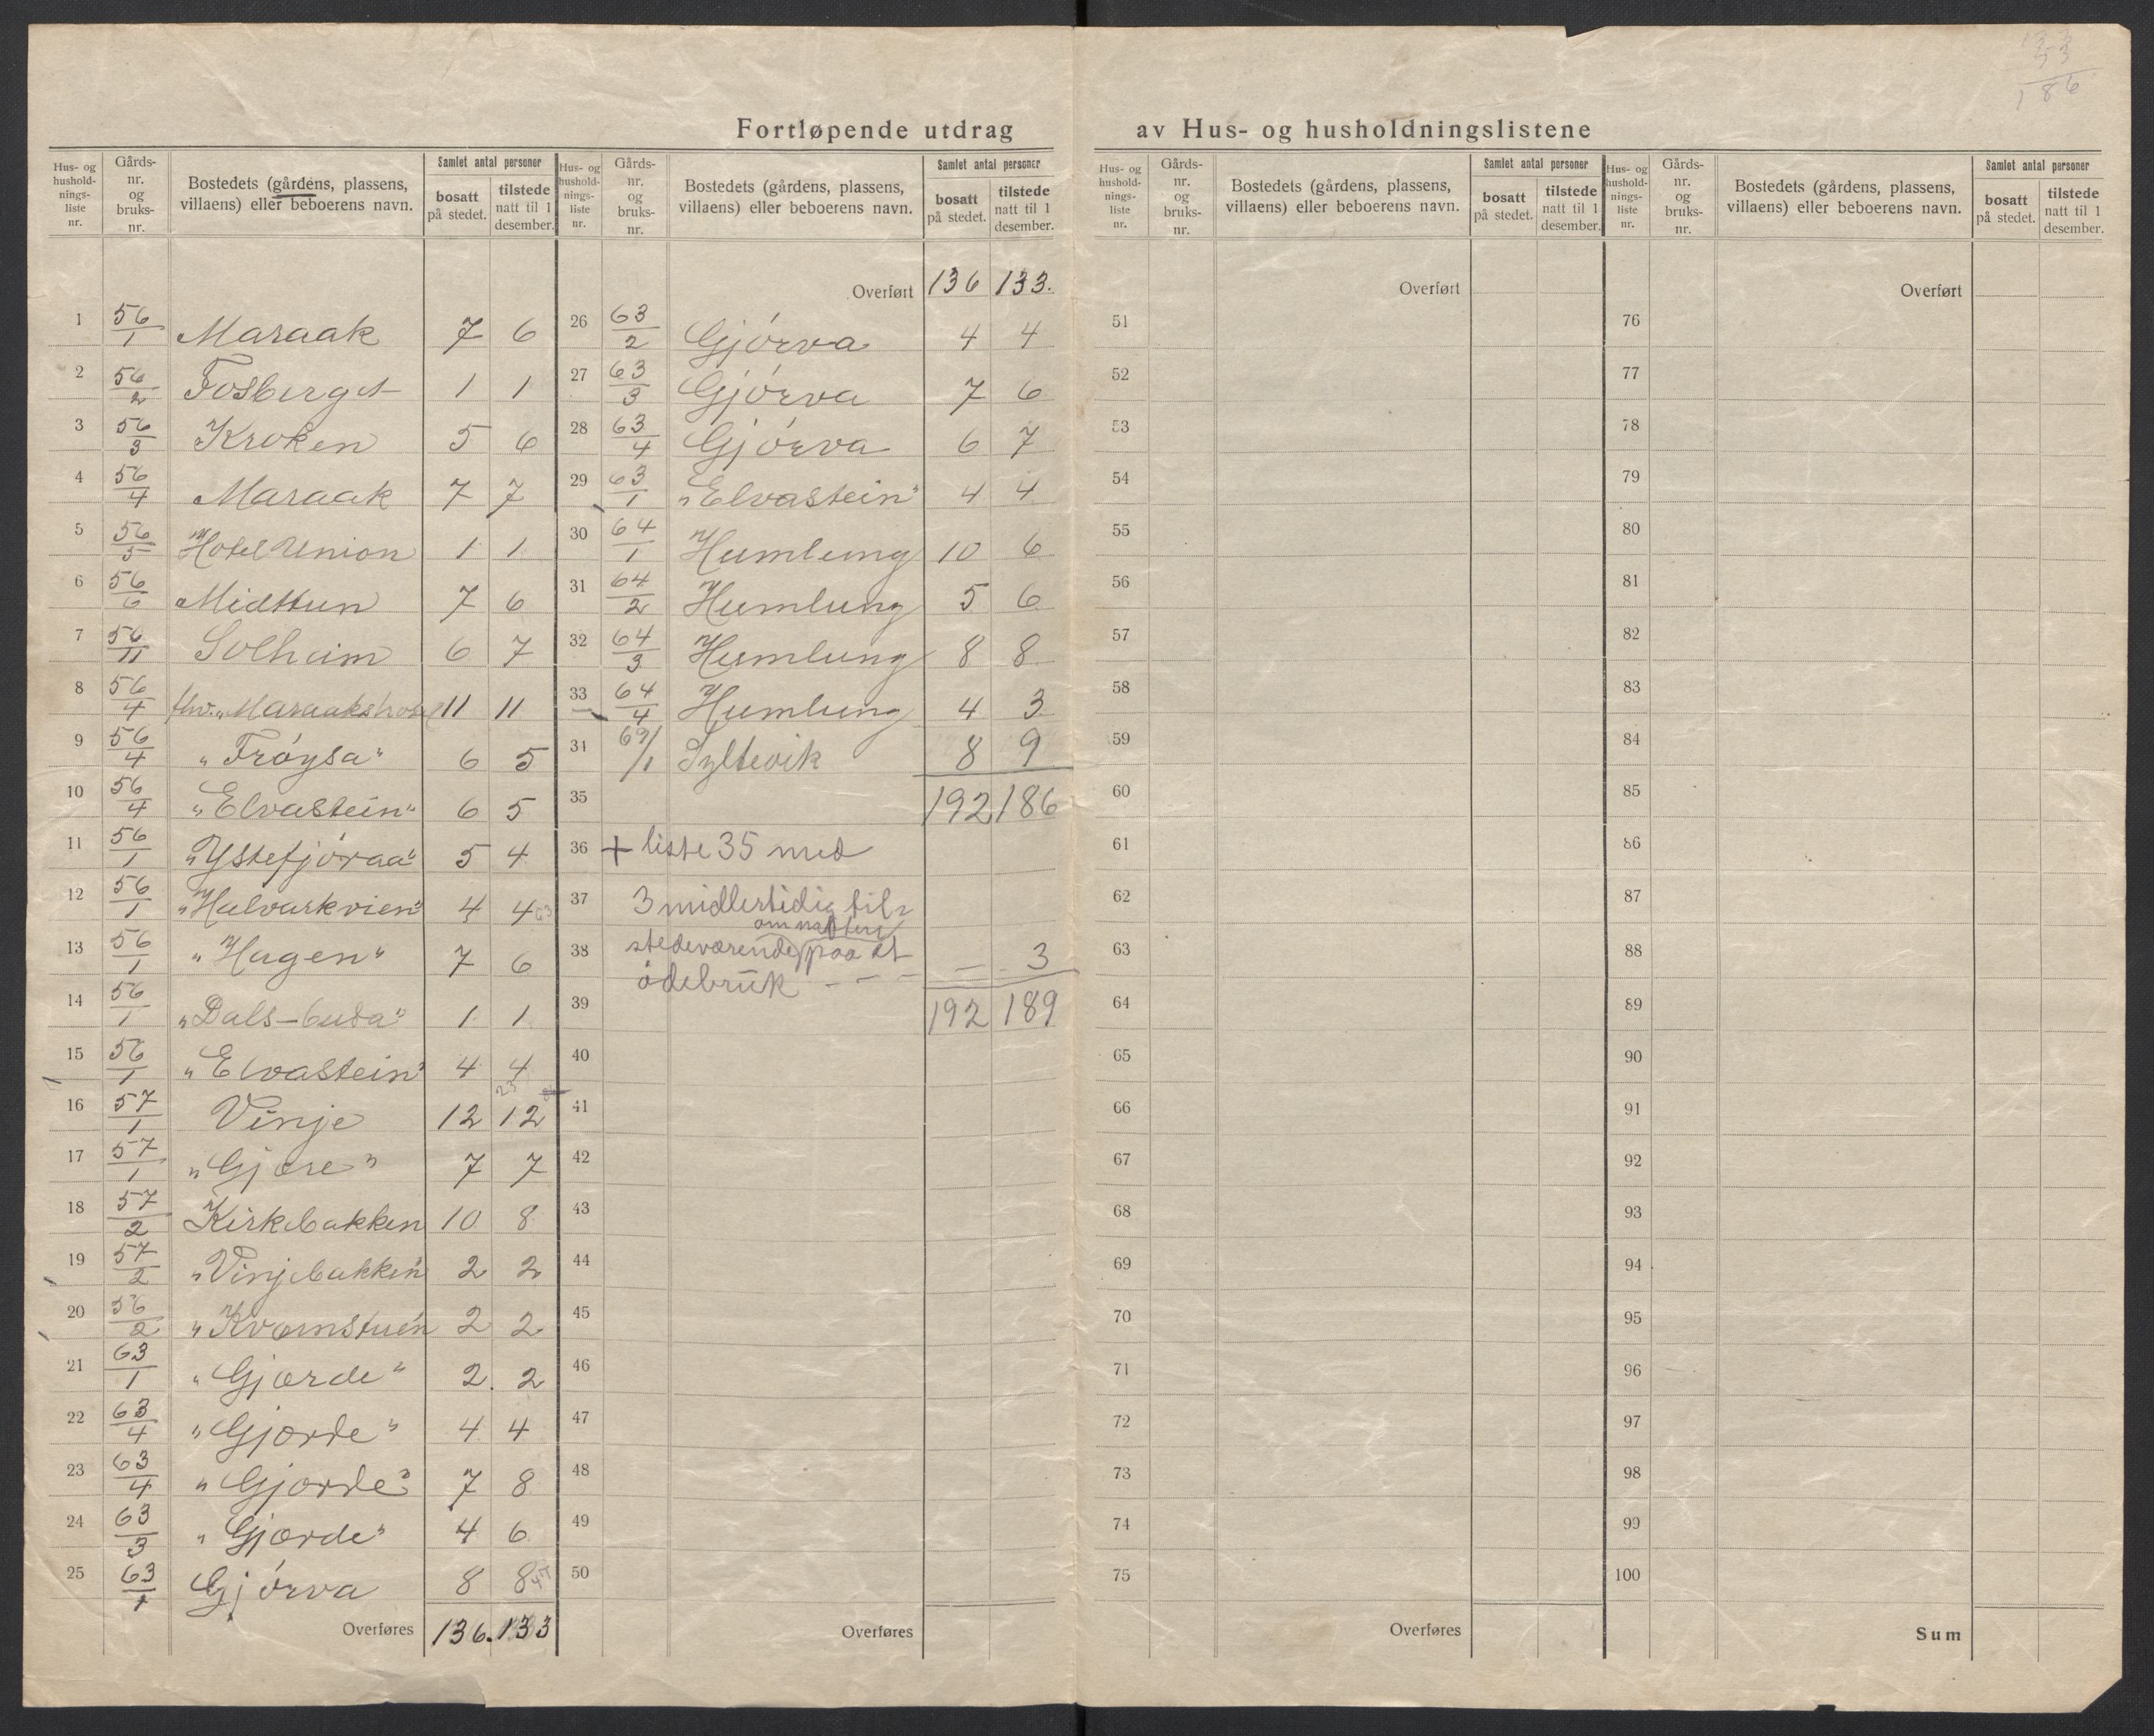 Fortløpende utdrag av Hus- og husholdningslistene
Hus- og hushold-nings-liste nr. | Gårds-nr. og bruks-nr. | Bostedets (gårdens, plassens, villaens) eller beboerens navn. | Samlet antal personer | bosatt på stedet. | tilstede natt til 1 desember.
1 56/1 Maraak 7 6
2 56/2 Fosberget 1 1
3 56/3 Kroken 5 6
4 56/4 Maraak 7 7
5 56/5 Hotel Union 1 1
6 56/6 Midttun 7 6
7 56/11 Solheim 6 7
8 56/4 "Maraakshotel 11 11
9 56/4 "Frøysa" 6 5
10 56/4 "Elvastein" 6 5
11 56/1 "Ystefjøraa" 5 4
12 56/1 "Halvarkvien" 4 4
13 56/1 "Hagen" 7 6
14 56/1 "Dals-buda" 1 1
15 56/1 "Elvastein" 4 4
16 57/1 Vinje 12 12
17 57/1 "Gjære" 7 7
18 57/2 Kirkebakken 10 8
19 57/2 "Vinjebakken 2 2
20 56/2 "Kvørnstuen 2 2
21 63/1 "Gjærde" 2 2
22 63/4 "Gjærde" 4 4
23 63/4 "Gjærde" 7 8
24 63/3 "Gjærde" 4 6
25 63/1 Gjørva 8 8
Overføres 136. 133
Hus- og hushold-nings-liste nr. | Gårds-nr. og bruks-nr. | Bostedets (gårdens, plassens, villaens) eller beboerens navn. | Samlet antal personer | bosatt på stedet. | tilstede natt til 1 desember.
Overført 136 133.
26 63/2 Gjørva 4 4
27 63/3 Gjørva 7 6
28 63/4 Gjørva 6 7
29 63/1 "Elvastein" 4 4
30 64/1 Humlung 10 6
31 64/2 Humlung 5 6
32 64/3 Humlung 8 8
33 64/4 Humlung 4 3
34 69/1 Syltevik 8 9
35 192 186
36 + liste 35 med
37 3 midlertidig til-
om natten
38 stedeværende paa et — 3
ødebruk - - -
39 192 189
40
41
42
43
44
45
46
47
48
49
50
Overføres
Hus- og hushold-nings-liste nr. | Gårds-nr. og bruks-nr. | Bostedets (gårdens, plassens, villaens) eller beboerens navn. | Samlet antal personer | bosatt på stedet. | tilstede natt til 1 desember.
Overført
51
52
53
54
55
56
57
58
59
60
61
62
63
64
65
66
67
68
69
70
71
72
73
74
75
Overføres
53
186
Hus- og hushold-nings-liste nr. | Gårds-nr. og bruks-nr. | Bostedets (gårdens, plassens, villaens) eller beboerens navn. | Samlet antal personer | bosatt på stedet. | tilstede natt til 1 desember.
Overført
76
77
78
79
80
81
82
83
84
85
86
87
88
89
90
91
92
93
94
95
96
97
98
99
100
Sum